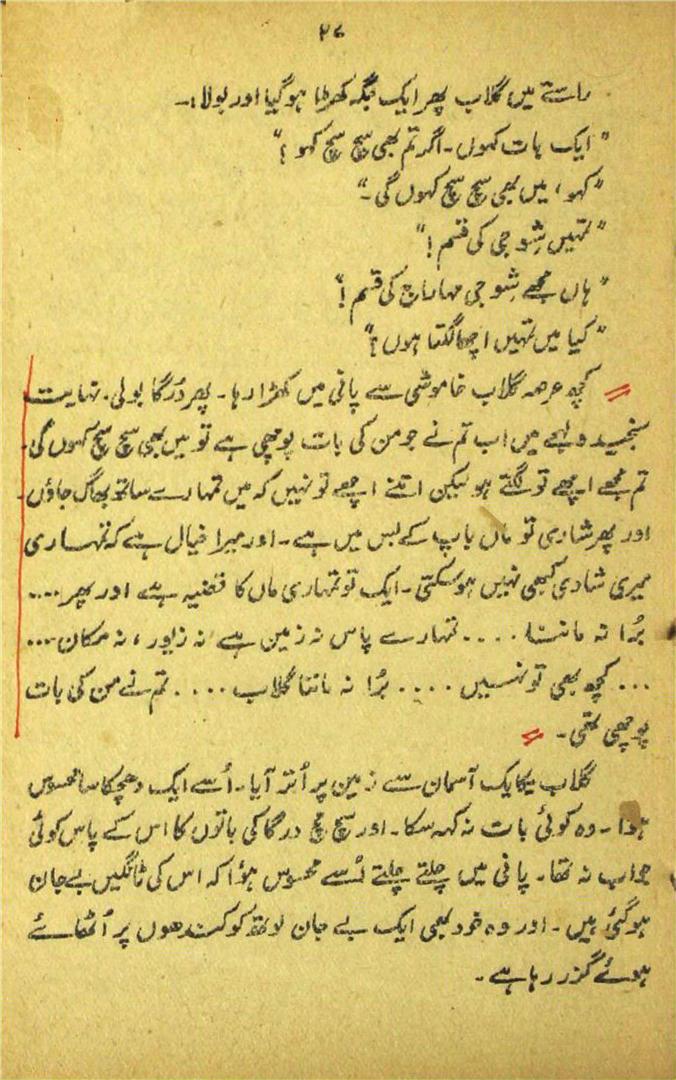 ۲۷
راستے میں گلاب پھر ایک جگہ کھڑا ہو گیا اور بولا:۔
"ایک بات کہوں۔ اگر تم بھی سچ سچ کہو؟"
"کہو، میں بھی سچ سچ کہوں گی۔"
"تمہیں شِو جی کی قسم!"
"ہاں مجھے شِو جی مہاراج کی قسم!"
"کیا میں تمہیں اچھا لگتا ہوں؟"
کچھ عرصہ گلاب خاموشی سے پانی میں کھڑا رہا۔ پھر دُرگا بولی۔ نہایت
سنجیدہ لہجے میں اب تم نے جو من کی بات پوچھی ہے تو میں بھی سچ سچ کہوں گی۔
تم مجھے اچھے تو لگتے ہو لیکن اتنے اچھے تو نہیں کہ میں تمہارے ساتھ بھاگ جاؤں۔
اور پھر شادی تو ماں باپ کے بس میں ہے۔ اور میرا خیال ہے کہ تمہاری
میری شادی کبھی نہیں ہو سکتی۔ ایک تو تمہاری ماں کا قضیہ ہے اور پھر ....
بُرا نہ ماننا .... تمہارے پاس نہ زمین ہے نہ زیور، نہ مکان ...
... کچھ بھی تو نہیں .... بُرا نہ ماننا گلاب .... تم نے من کی بات
پوچھی تھی۔
گلاب یکایک آسمان سے زمین پر اُتر آیا۔ اُسے ایک دھچکا سا محسوس
ہوا۔ وہ کوئی بات نہ کہہ سکا۔ اور سچ مچ درگا کی باتوں کا اس کے پاس کوئی
جواب نہ تھا۔ پانی میں چلتے چلتے اُسے محسوس ہؤا کہ اس کی ٹانگیں بے جان
ہو گئی ہیں۔ اور وہ خود بھی ایک بے جان لوتھ کو کندھوں پر اُٹھائے
ہوئے گزر رہا ہے۔